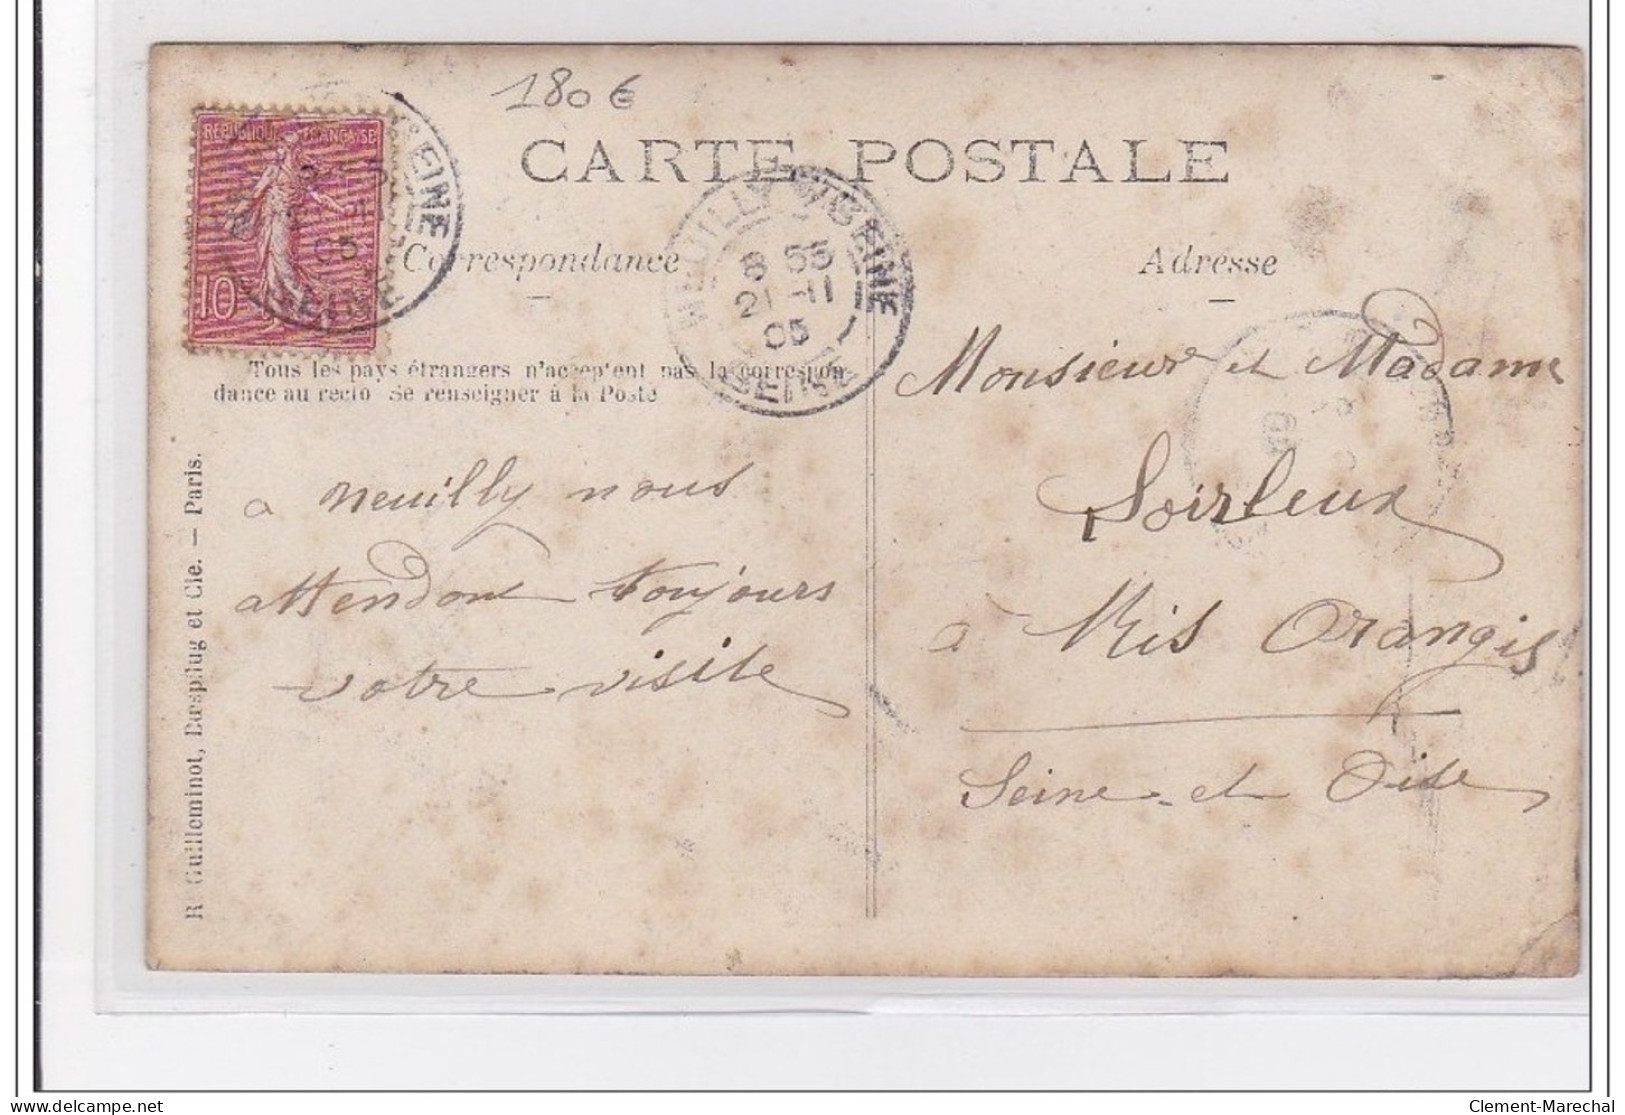 180 €
CARTE POSTALE
REPUBLIQUE FRANÇAISE
10
EINE
05
NEUILLY S/SEINE
8 55
21 -11
05
SEINE
Correspondance
Adresse
Tous les pays étrangers n'acceptent pas la correspon-
dance au recto Se renseigner à la Poste
R Guilleminot, Bœspflug et Cie. — Paris.
a neuilly nous
attendons toujours
votre visite
Monsieur et Madame
Soirleux
à Ris Orangis
Seine et Oise
delcampe.net
Clement-Marechal